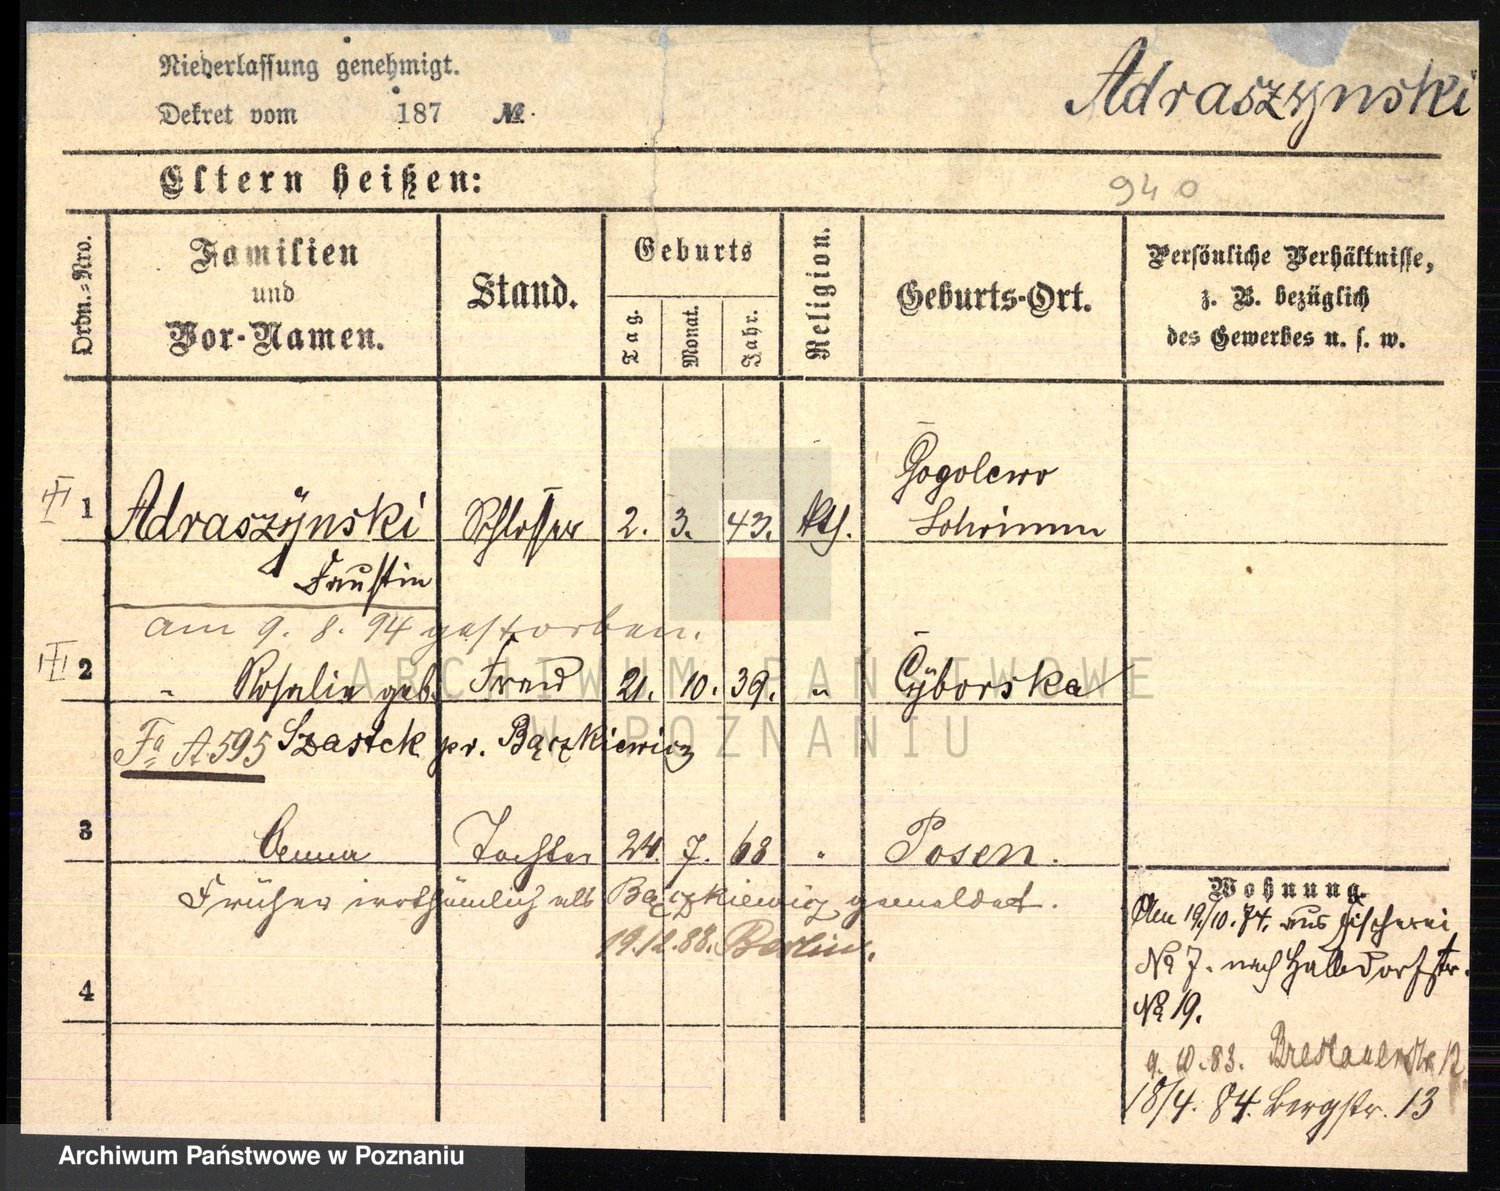 Niederlassung genehmigt.
Dekret vom 187 №.
Adraszynski
Eltern heißen:
940
Ordn.-Nro.
Familien
und
Vor-Namen.
Stand.
Geburts
Tag.
Monat.
Jahr.
Religion.
Geburts-Ort.
Persönliche Verhältnisse,
z. B. bezüglich
des Gewerbes u. s. w.
Gogolewo
1 Adraszÿnski Schlosser 2. 3. 43. kth. Schrimm
Faustin
am 9. 8. 94 gestorben.
2 " Rosalie geb. Frau 21. 10. 39. " Cÿborska
Fa A 595 Szastek pr. Bączkiewicz
3 Anna Tochter 24. 7. 68 " Posen.
Früher irrthümlich als Bączkiewicz gemeldet.
19.12.88. Berlin.
4
Wohnung.
Am 19/10. 74. aus Fischerei
№ 7. nach Halbdorfstr.
№ 19.
9. 10. 83. Breslauerstr 12
18/4. 84. Bergstr. 13
ARCHIWUM PAŃSTWOWE
W POZNANIU
Archiwum Państwowe w Poznaniu